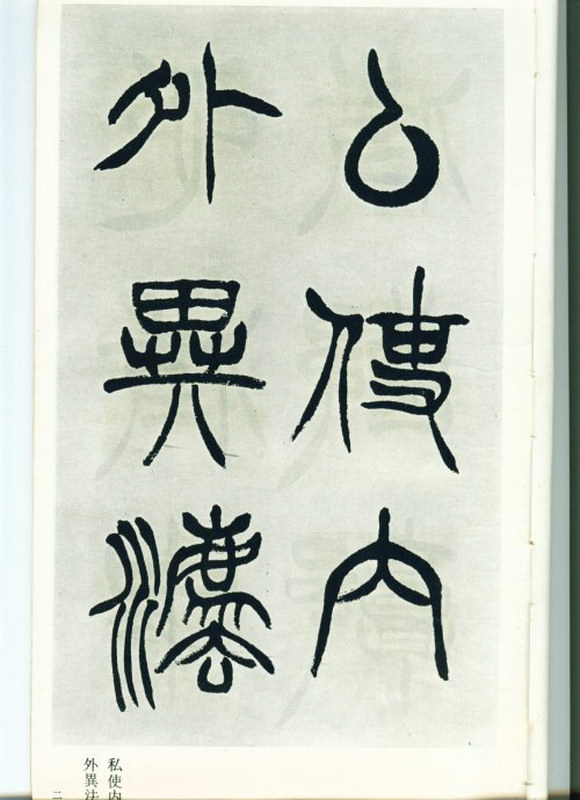 厶使內
外異灋
私使内
外異法
二